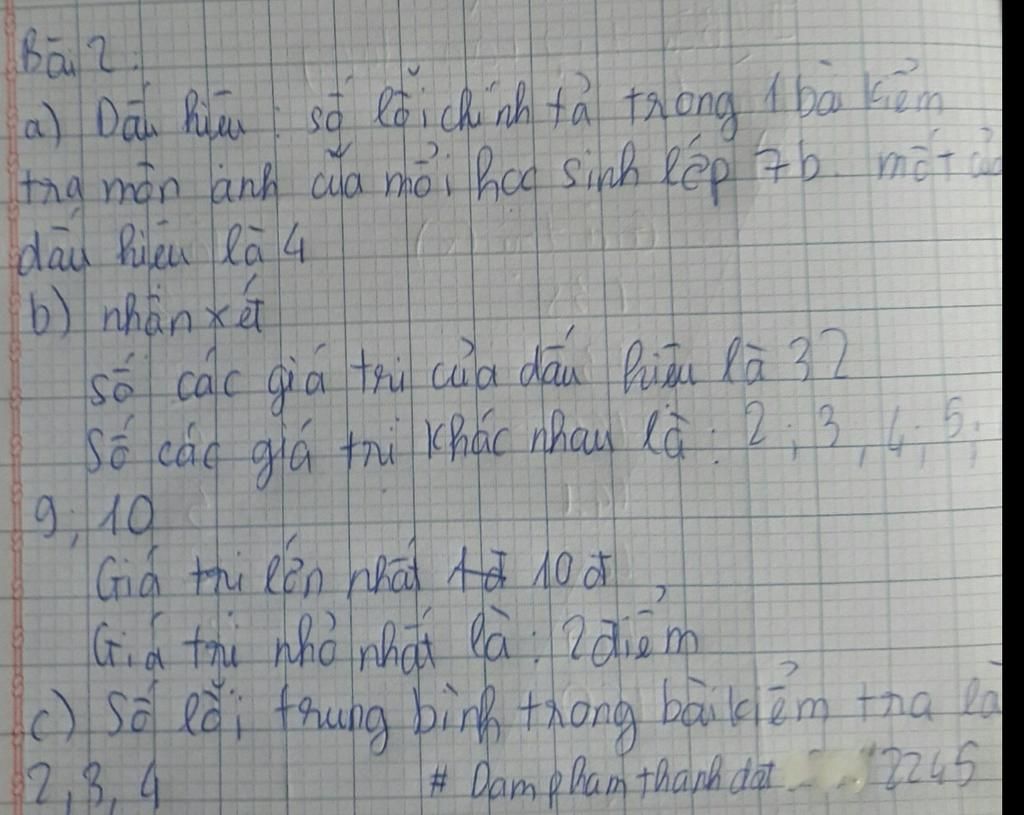 Bài 2:
a) Dấu hiệu : số lỗi chính tả trong 1 bài kiểm
tra môn anh của mỗi học sinh lớp 7b. mốt của
dấu hiệu là 4
b) nhận xét
số các giá trị của dấu hiệu là 32
Số các giá trị khác nhau là : 2 ; 3, 4, 5;
9, 10
Giá trị lớn nhất 10 đ
Giá trị nhỏ nhất là : 2 điểm
c) Số lỗi trung bình trong bài kiểm tra là
2, 3, 4
# Dam pham thanh dat 2245